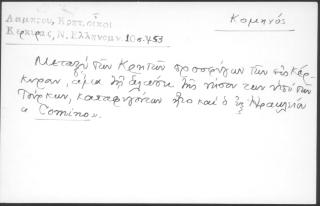 Λάμπρου, Κρητ. οἶκοι
Κερκύρας, Ν. Ἑλληνομν. 10 σ. 453
Κομηνός
Μεταξὺ τῶν Κρητῶν προσφύγων τῶν εἰς Κέρ-
κυραν, ἅμα τῇ ἁλώσει τῆς νήσου των ὑπὸ τῶν
Τούρκων, καταφυγόντων ἦτο καὶ ὁ ἐξ Ἡρακλείου
« Comino».